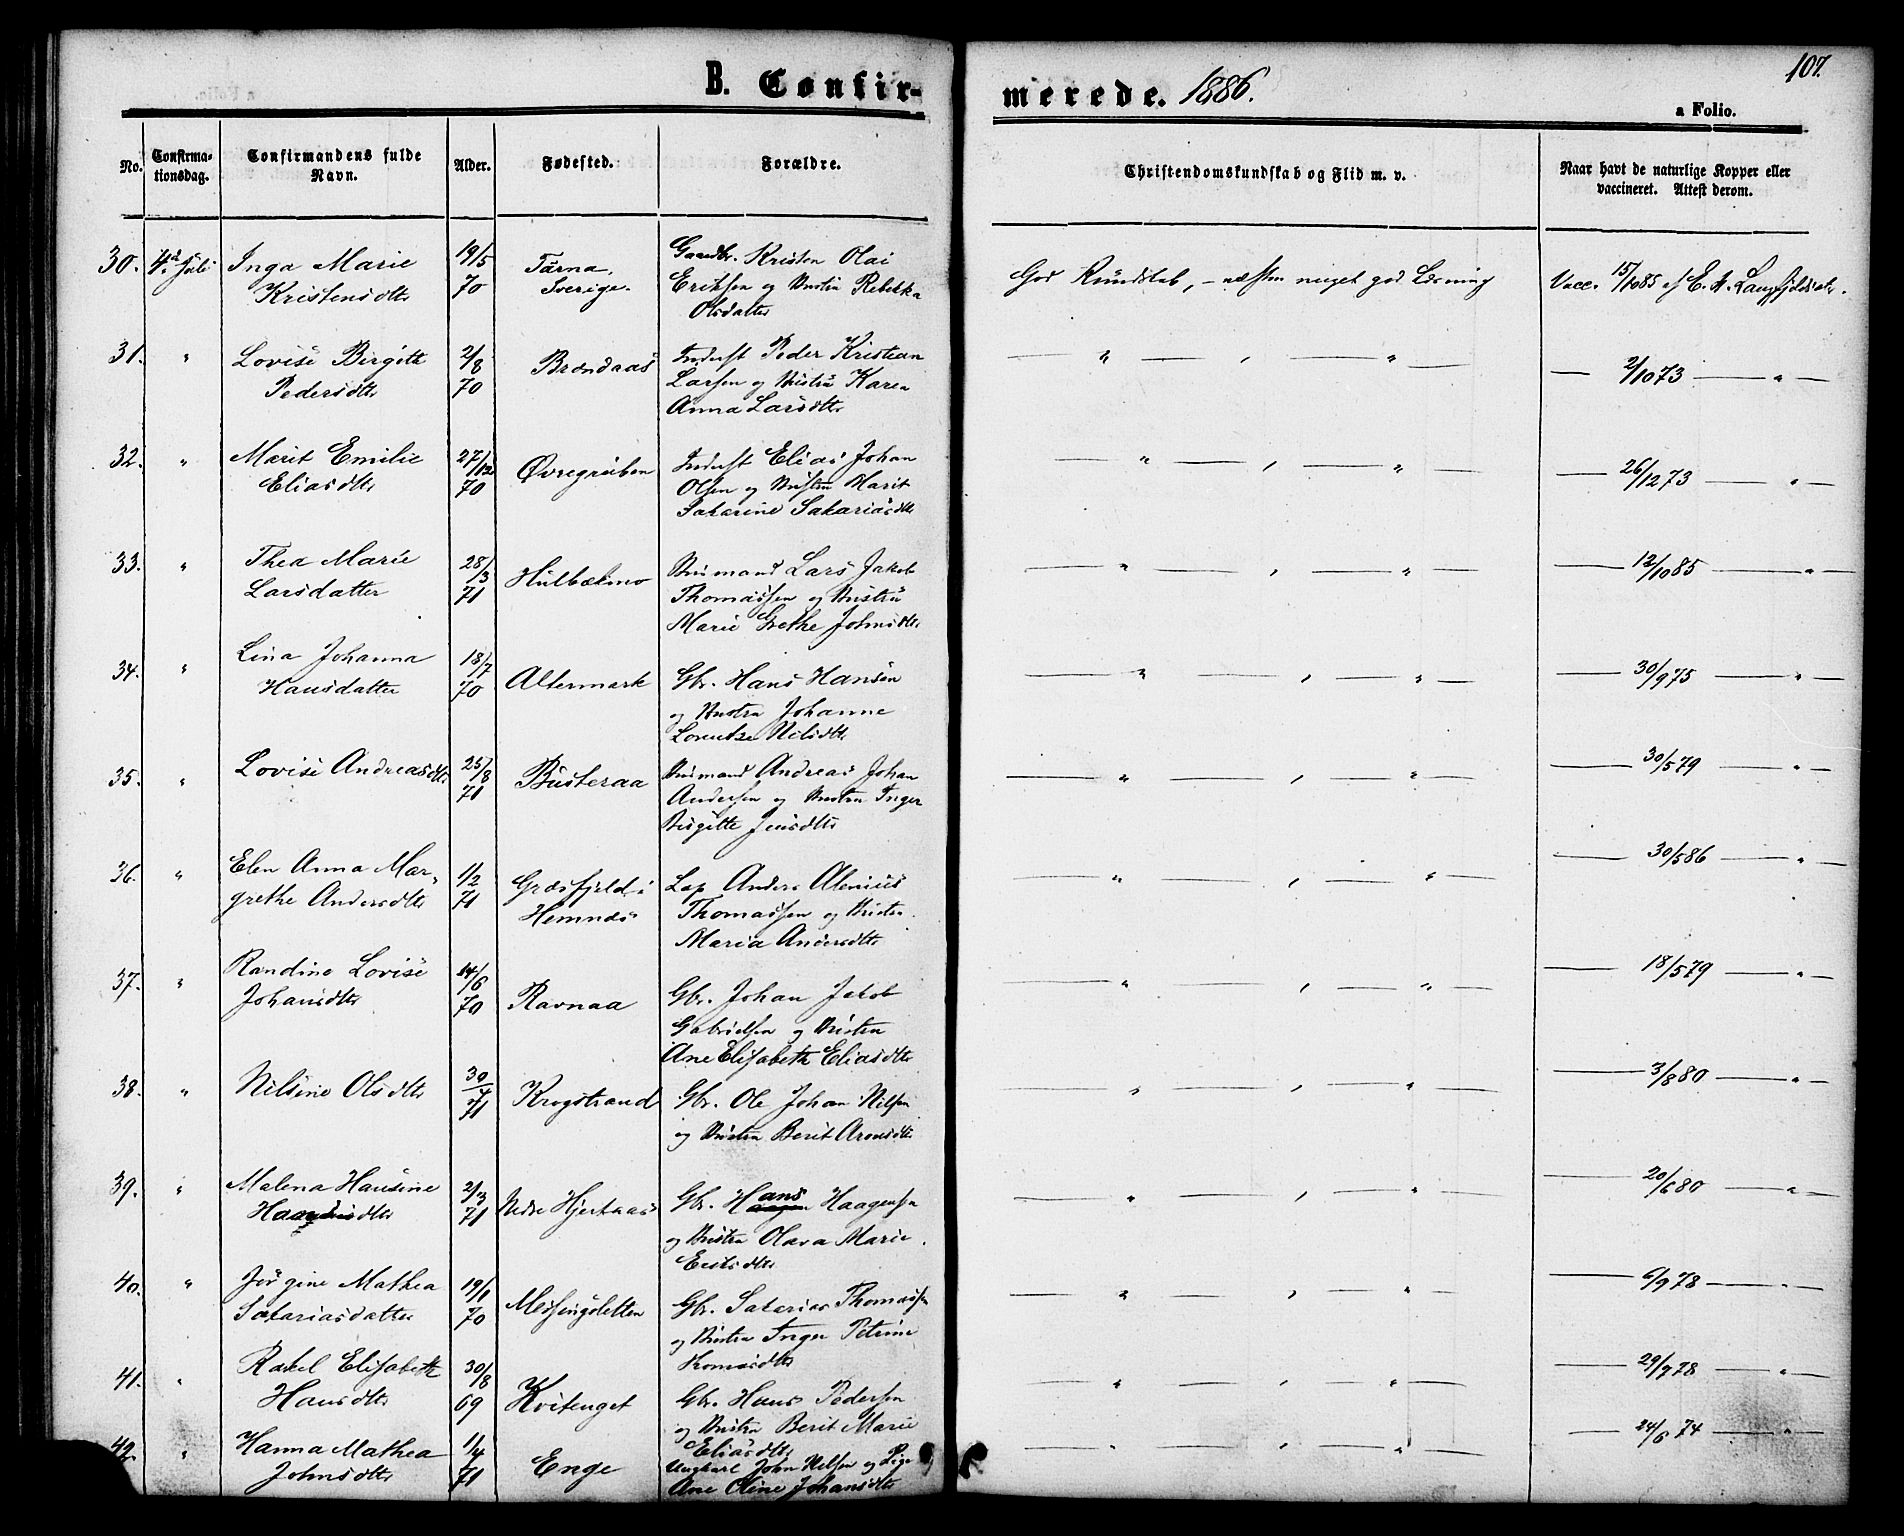 107.
B. Confirmerede. 1886.
a Folio.
No.
Confirmationsdag.
Confirmandens fulde Navn.
Alder.
Fødested.
Forældre.
Christendomskundskab og Flid m. v.
Naar havt de naturlige Kopper eller vaccineret. Attest derom.
30. 4de Juli Inga Marie 19/5 Tärna, Gaardbr. Kristen Olai
Kristensdtr 70 Sverige. Eriksen og Hustru Rebekka
Olsdatter
God Kundskab, – næsten meget god Læsning Vacc. 15/1085 af E. A.
31. " Lovise Birgitte 2/8 Brændaas Inderst Peder Kristian
Pedersdtr 70 Larsen og Hustru Karen
Anna Larsdtr
— " — , — " — — 2/1073 — " —
32. " Marit Emilie 27/12 Øvregruben Inderst Elias Johan
Eliasdtr 70 Olsen og Hustru Marit
Sakarine Sakariasdtr
— " — , — " — — 26/1273 — " —
33. " Thea Marie 28/3 Hulbækmo Husmand Lars Jakob
Larsdatter 71 Thomassen og Hustru
Marie Grethe Johnsdtr
— " — , — " — — 12/1085 — " —
34. " Lina Johanna 18/7 Altermark Gbr. Hans Hansen
Hansdatter 70 og Hustru Johanne
Lorentze Nilsdtr
— " — , — " — — 30/975 — " —
35. " Lovise Andreasdtr 25/8 Busteraa Husmand Andreas Johan
71 Andersen og Hustru Inger
Birgitte Jensdtr
— " — , — " — — 30/579 — " —
36. " Elen Anna Mar- 1/2 Græsfjeld i Lap Anders Alenius
grethe Andersdtr 71 Hemnæs Thomassen og Hustru
Maria Andersdtr
— " — , — " — — 30/586 — " —
37. " Randine Lovise 14/6 Ravnaa Gbr. Johan Jakob
Johansdtr 70 Gabrielsen og Hustru
Ane Elisabeth Eliasdtr
— " — , — " — — 18/579 — " —
38. " Nilsine Olsdtr 30/4 Krogstrand Gbr. Ole Johan Nilsen
71 og Hustru Berit Aronsdtr
— " — , — " — — 3/880 — " —
39. " Malena Hansine 2/3 Nedre Hjertaas Gbr. Hans Haagensen
71 og Hustru Olava Marie
— " — , — " — — 20/680 — " —
40. " Jørgine Mathea 19/1 Messingsletten Gbr. Sakarias Thomassen
Sakariasdatter 70 og Hustru Inger Petrine
Thomasdtr
— " — , — " — — 6/978 — " —
41. " Rakel Elisabeth 30/8 Kvitenget Gbr. Hans Pedersen
Hansdtr 69 og Hustru Berit Marie
Eliasdtr
— " — , — " — — 29/778 — " —
42. " Hanna Mathea 1/4 Enge Ungkarl John Nilsen og Pige
Johnsdtr 71 Ane Oline Johansdtr
— " — , — " — — 24/674 — " —